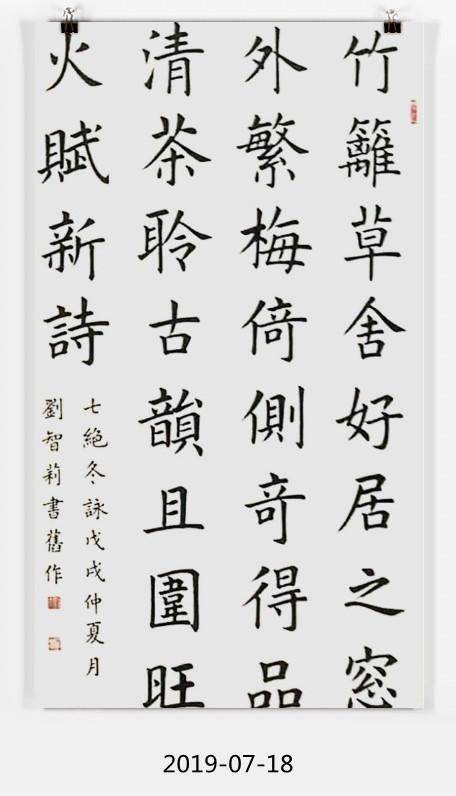 竹籬草舍好居之窓
外繁梅倚側竒得品
清茶聆古韻且圍旺
火賦新詩
七絶冬詠戊戌仲夏月
劉智莉書舊作
2019-07-18